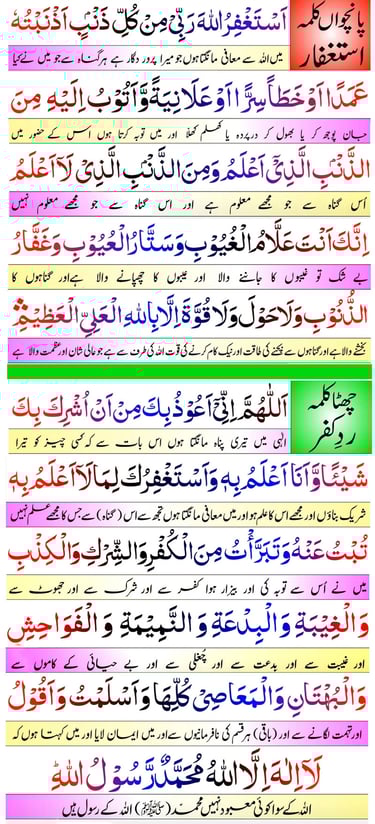 پانچواں کلمہ
استغفار
اَسْتَغْفِرُ اللهَ رَبِّیْ مِنْ كُلِّ ذَنْۢبٍ اَذْنَبْتُهٗ
میں اللہ سے معافی مانگتا ہوں جو میرا پروردگار ہے ہر گناہ سے جو میں نے کیا
عَمَدًا اَوْ خَطَأً سِرًّا اَوْ عَلَانِيَةً وَّاَتُوْبُ اِلَيْهِ مِنَ
جان بوجھ کر یا بھول کر درپردہ یا کھلم کھلا اور میں توبہ کرتا ہوں اس کے حضور میں
الذَّنْۢبِ الَّذِیْٓ اَعْلَمُ وَمِنَ الذَّنْۢبِ الَّذِیْ لَآ اَعْلَمُ
اُس گناہ سے جو مجھے معلوم ہے اور اس گناہ سے جو مجھے معلوم نہیں
اِنَّكَ اَنْتَ عَلَّامُ الْغُيُوْبِ وَسَتَّارُ الْعُيُوْبِ وَغَفَّارُ
بے شک تو غیبوں کا جاننے والا اور عیبوں کا چھپانے والا ہے اور گناہوں کا
الذُّنُوْبِ وَلَا حَوْلَ وَلَا قُوَّةَ اِلَّا بِاللهِ الْعَلِیِّ الْعَظِيْمِ
بخشنے والا ہے اور گناہوں سے بچنے کی طاقت اور نیک کام کرنے کی قوت اللہ کی طرف سے ہے جو عالی شان اور عظمت والا ہے
چھٹا کلمہ
ردِ کفر
اَللّٰهُمَّ اِنِّیْٓ اَعُوْذُ بِكَ مِنْ اَنْ اُشْرِكَ بِكَ
الٰہی میں تیری پناہ مانگتا ہوں اس بات سے کہ کسی چیز کو تیرا
شَيْئًا وَّاَنَا اَعْلَمُ بِهٖ وَاَسْتَغْفِرُكَ لِمَا لَآ اَعْلَمُ بِهٖ
شریک بناؤں اور مجھے اس کا علم ہو اور میں معافی مانگتا ہوں تجھ سے اس (گناہ) سے جس کا مجھے علم نہیں
تُبْتُ عَنْهُ وَتَبَرَّأْتُ مِنَ الْكُفْرِ وَالشِّرْكِ وَالْكِذْبِ
میں نے اُس سے توبہ کی اور بیزار ہوا کفر سے اور شرک سے اور جھوٹ سے
وَالْغِيْبَةِ وَالْبِدْعَةِ وَالنَّمِيْمَةِ وَالْفَوَاحِشِ
اور غیبت سے اور بدعت سے اور چُغلی سے اور بے حیائی کے کاموں سے
وَالْبُهْتَانِ وَالْمَعَاصِیْ كُلِّهَا وَاَسْلَمْتُ وَاَقُوْلُ
اور تہمت لگانے سے اور (باقی) ہر قسم کی نافرمانیوں سے اور میں ایمان لایا اور میں کہتا ہوں کہ
لَآ اِلٰهَ اِلَّا اللهُ مُحَمَّدٌ رَّسُوْلُ اللهِ
اللہ کے سوا کوئی معبود نہیں محمد (ﷺ) اللہ کے رسول ہیں